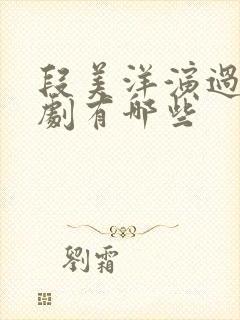 段美洋演過
劇有哪些
劉霜